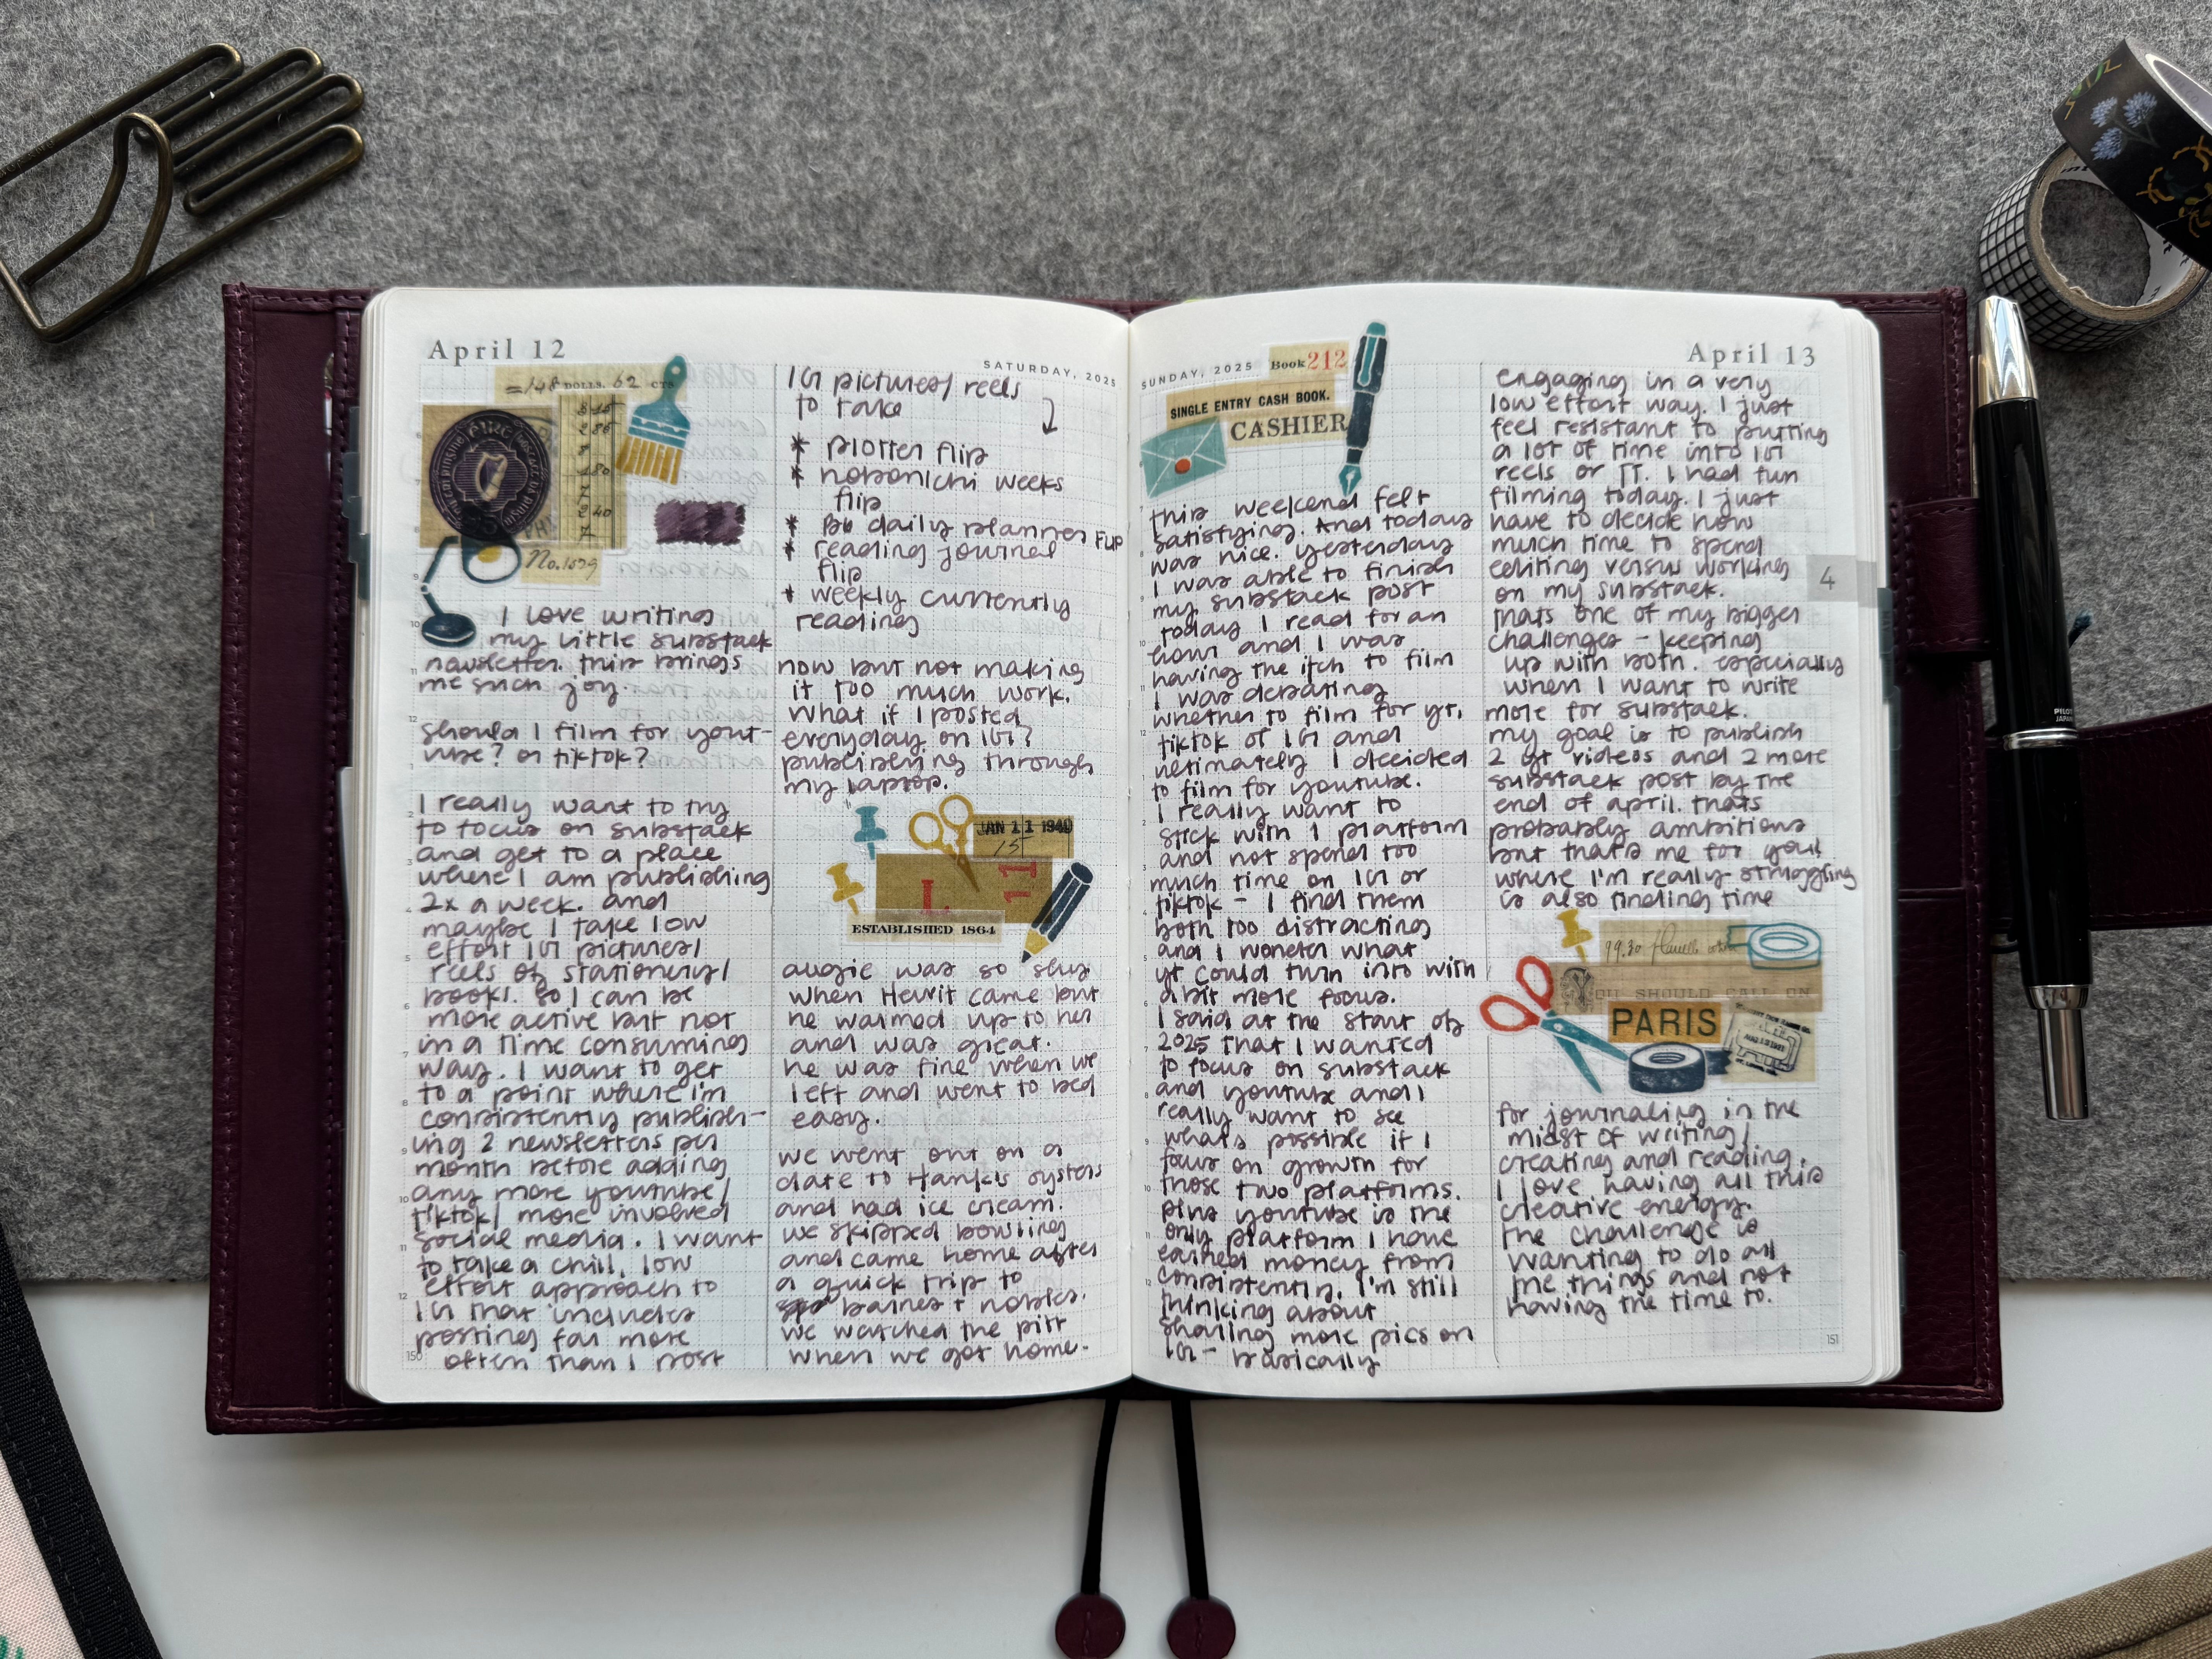 April 12
SATURDAY, 2025
=148 DOLLS. 62 CTS
ÉIRE
40
No. 1029
I love writing
my little substack
newsletter. this brings
me such joy.
should I film for yout-
ube? or tiktok?
I really want to try
to focus on substack
and get to a place
where I am publishing
2x a week. and
maybe I take low
effort IG pictures/
reels of stationery/
books. so I can be
more active but not
in a time consuming
way. I want to get
to a point where I'm
consistently publish-
ing 2 newsletters per
month before adding
any more youtube/
tiktok/ more involved
social media. I want
to take a chill, low
effort approach to
IG that includes
posting far more
often than I post
150
IG pictures/ reels
to take
* plotter flip
* hobonichi weeks
flip
* daily planner FLIP
* reading journal
flip
* weekly currently
reading
now but not making
it too much work.
What if I posted
everyday on IG?
publishing through
my laptop.
JAN 11 1940
15
11
ESTABLISHED 1864
augie was so shy
when came but
he warmed up to her
and was great.
he was fine when we
left and went to bed
easy.
we went out on a
date to Hank's oysters
and had ice cream.
we skipped bowling
and came home after
a quick trip to
barnes + nobles.
we watched the pitt
when we got home.
SUNDAY, 2025
April 13
Book 212
SINGLE ENTRY CASH BOOK.
CASHIER
this weekend felt
satisfying. And today
was nice. yesterday
I was able to finish
my substack post
today I read for an
hour and I was
having the itch to film
I was debating
whether to film for yt,
tiktok or IG and
ultimately I decided
to film for youtube.
I really want to
stick with 1 platform
and not spend too
much time on IG or
tiktok - I find them
both too distracting
and I wonder what
yt could turn into with
a bit more focus.
I said at the start of
2025 that I wanted
to focus on substack
and youtube and I
really want to see
whats possible if I
focus on growth for
those two platforms.
plus youtube is the
only platform I have
earned money from
consistently. I'm still
thinking about
sharing more pics on
IG - basically
engaging in a very
low effort way. I just
feel resistant to putting
a lot of time into IG
reels or TT. I had fun
filming today. I just
have to decide how
much time to spend
editing versus working
on my substack.
thats one of my bigger
challenges - keeping
up with both. especially
when I want to write
more for substack.
my goal is to publish
2 yt videos and 2 more
substack post by the
end of april. thats
probably ambitious
but that's me for you!
where I'm really struggling
is also finding time
99.30
YOU SHOULD CALL ON
PARIS
for journaling in the
midst of writing/
creating and reading.
I love having all this
creative energy.
the challenge is
wanting to do all
the things and not
having the time to.
4
151
PILOT
JAPAN